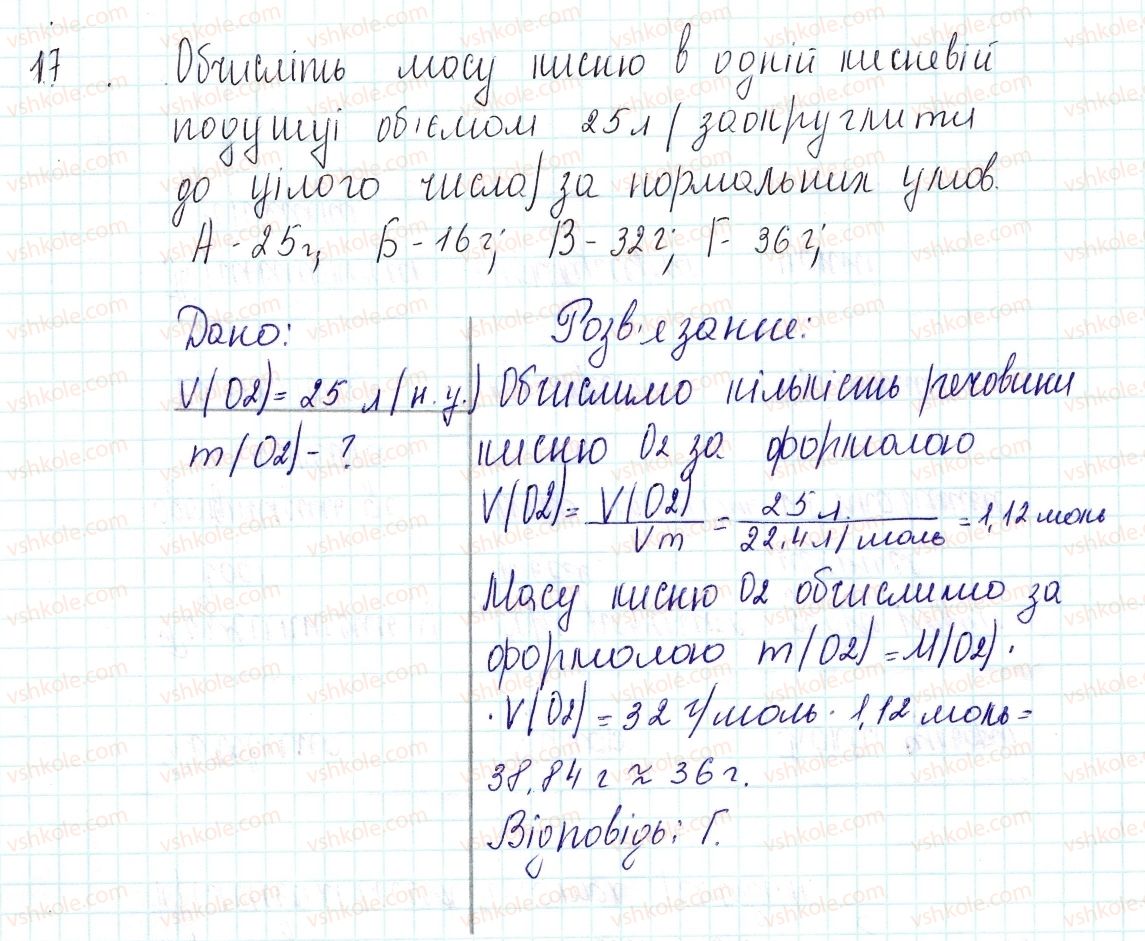 17. Обчисліть масу кисню в одній кисневій
подушці об'ємом 25 л (заокруглити
до цілого числа) за нормальних умов.
А - 25 г; Б - 16 г; В - 32 г; Г - 36 г;
Дано:
V(O2) = 25 л (н.у.)
m(O2) - ?
Розв'язание:
Обчислимо кількість речовини
кисню O2 за формолою
V(O2) = V(O2) / Vm = 25 л. / 22,4 л/моль = 1,12 моль
Масу кисню O2 обчислимо за
формолою m(O2) = M(O2) ·
· V(O2) = 32 г/моль · 1,12 моль =
38,84 г ≈ 36 г.
Відповідь: Г.